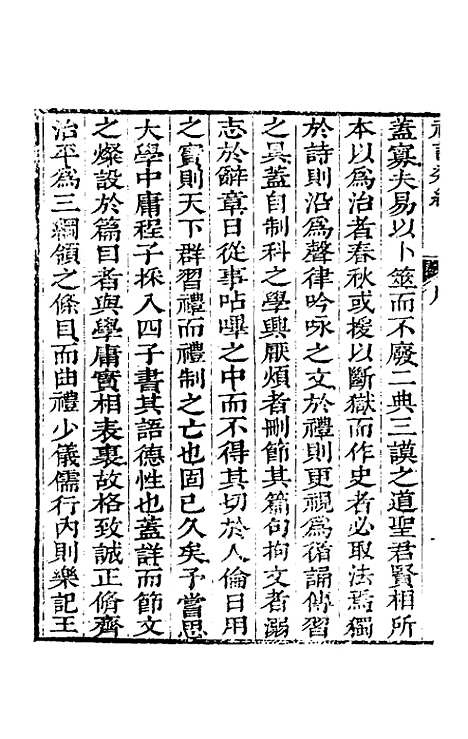 蓋寡夫易以卜筮而不廢二典三謨之道聖君賢相所
本以為治者春秋或授以斷獄而作史者必取法焉獨
於詩則沿為聲律吟咏之文於禮則更視為循誦傳習
之具蓋自制科之學興厭煩者刪節其篇句拘文者溺
志於辭章日從事呫嗶之中而不得其切於人倫日用
之實則天下群習禮而禮制之亡也固已久矣予嘗思
大學中庸程子採入四子書其語德性也蓋詳而節文
之燦設於篇曰者與學庸實相表裏故格致誠正脩齊
治平為三綱領之條目而曲禮少儀儒行內則樂記王